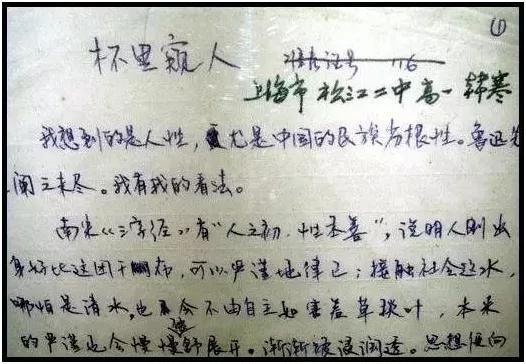 (1)
杯里窥人
准考证号 116
上海市松江二中高一 韩寒
我想到的是人性，尤是中国的民族劣根性。鲁迅先
阐之未尽。我有我的看法。
南宋《三字经》有"人之初，性本善"，说明人刚出
身好比这团干布，可以严谨地律己；接触社会这水，
哪怕是清水，也会不由自主如害羞草般叶，本来
的严谨也会慢慢舒展开，渐渐被浸润透。思想便向